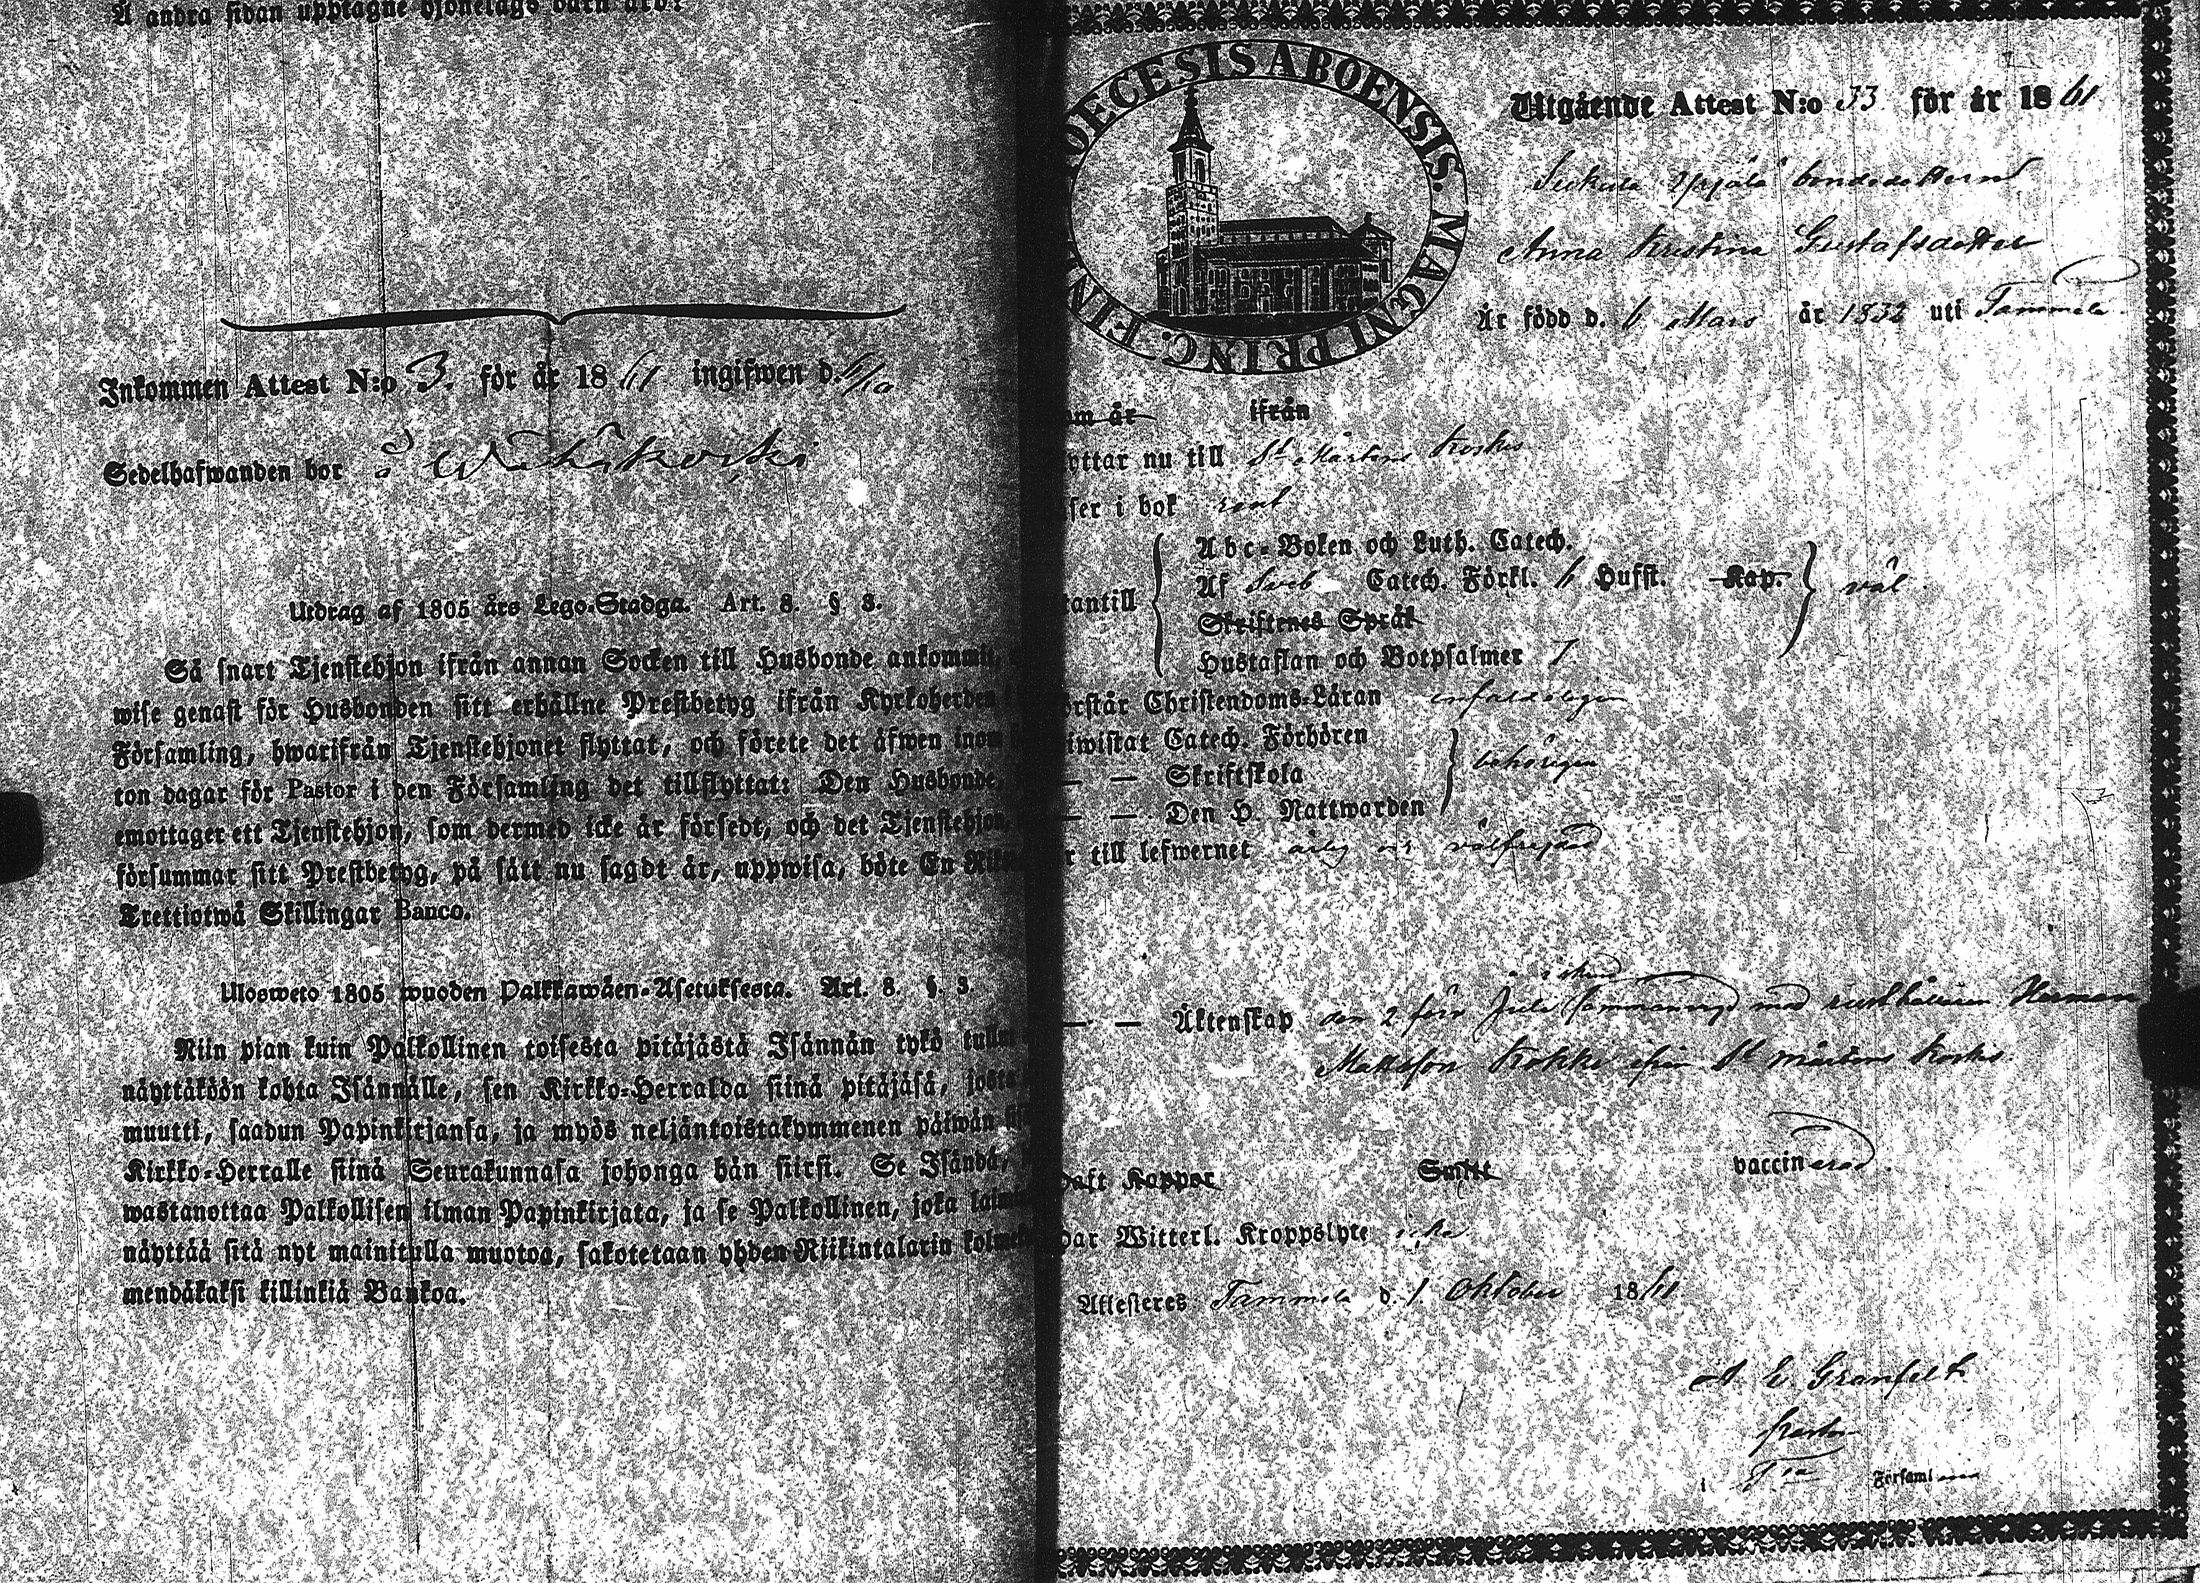 Å andra sidan upptagne hjonelags barn äro:
Inkommen Attest N:o 3. för år 1861 ingifwen d. 6/10
Sedelhafwanden bor i
Utdrag af 1805 års Lego-Stadga. Art. 8. § 3.
Så snart Tjenstehjon ifrån annan Socken till Husbonde ankommit,
wise genast för Husbonden sitt erhållne Prestbetyg ifrån Kyrkoherden
Församling, hwarifrån Tjenstehjonet flyttat, och förete det äfwen inom
ton dagar för Pastor i den Församling det tillflyttat: Den Husbonde,
emottager ett Tjenstehjon, som dermed icke är försedt, och det Tjenstehjon,
försummar sitt Prestbetyg, på sätt nu sagdt är, uppwisa, böte En
Trettiotwå Skillingar Banco.
Ulosweto 1805 wuoden Palkkawäen-Asetuksesta. Art. 8. §. 3.
Niin pian kuin Palkollinen toisesta pitäjästä Isännän tykö
näyttäköön kohta Isännälle, sen Kirkko-Herralda siinä pitäjäsä, josta
muutti, saadun Papinkirjansa, ja myös neljäntoistakymmenen päiwän
Kirkko-Herralle siinä Seurakunnasa johonga hän siirsi. Se Isändä,
wastanottaa Palkollisen ilman Papinkirjata, ja se Palkollinen, joka
näyttää sitä nyt mainitulla muotoa, sakotetaan yhden Riikintalarin
mendäkaksi killinkiä Bankoa.
DIOECESIS ABOENSIS. MAGNI PRINC. FINL
Utgående Attest N:o 33 för år 1861
bondedottern
Anna Kristina Gustafsdotter
Är född d. 6 Mars år 1832 uti Tammela
om år ifrån
yttar nu till St Mårtens Koskis
ser i bok rent
tantill
Abc-Boken och Luth. Catech.
Af Sveb Catech. Förkl. 6 Hufst. Kap. väl
Skriftenes Språk
Hustaflan och Botpsalmer 7
örstår Christendoms-Läran enfaldeligen
iwistat Catech. Förhören
— — Skriftskola behörigen
— — Den H. Nattwarden
r till lefwernet ärlig och välfrejdad
— — Äktenskap den 2 förr med rusthållaren Herman
Mattsson från St Mårtens Koskis
haft Koppor Smitt vaccinerad.
har Witterl. Kroppslyte icke
Attesteres Tammela d. 1 Oktober 1861
A. E. Granfelt
Pastor
i Församl